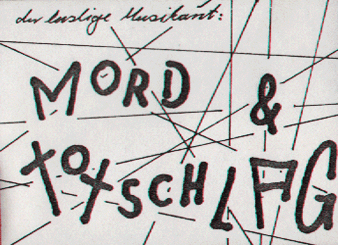 der lustige Musikant:
MORD &
TOTSCHLAG